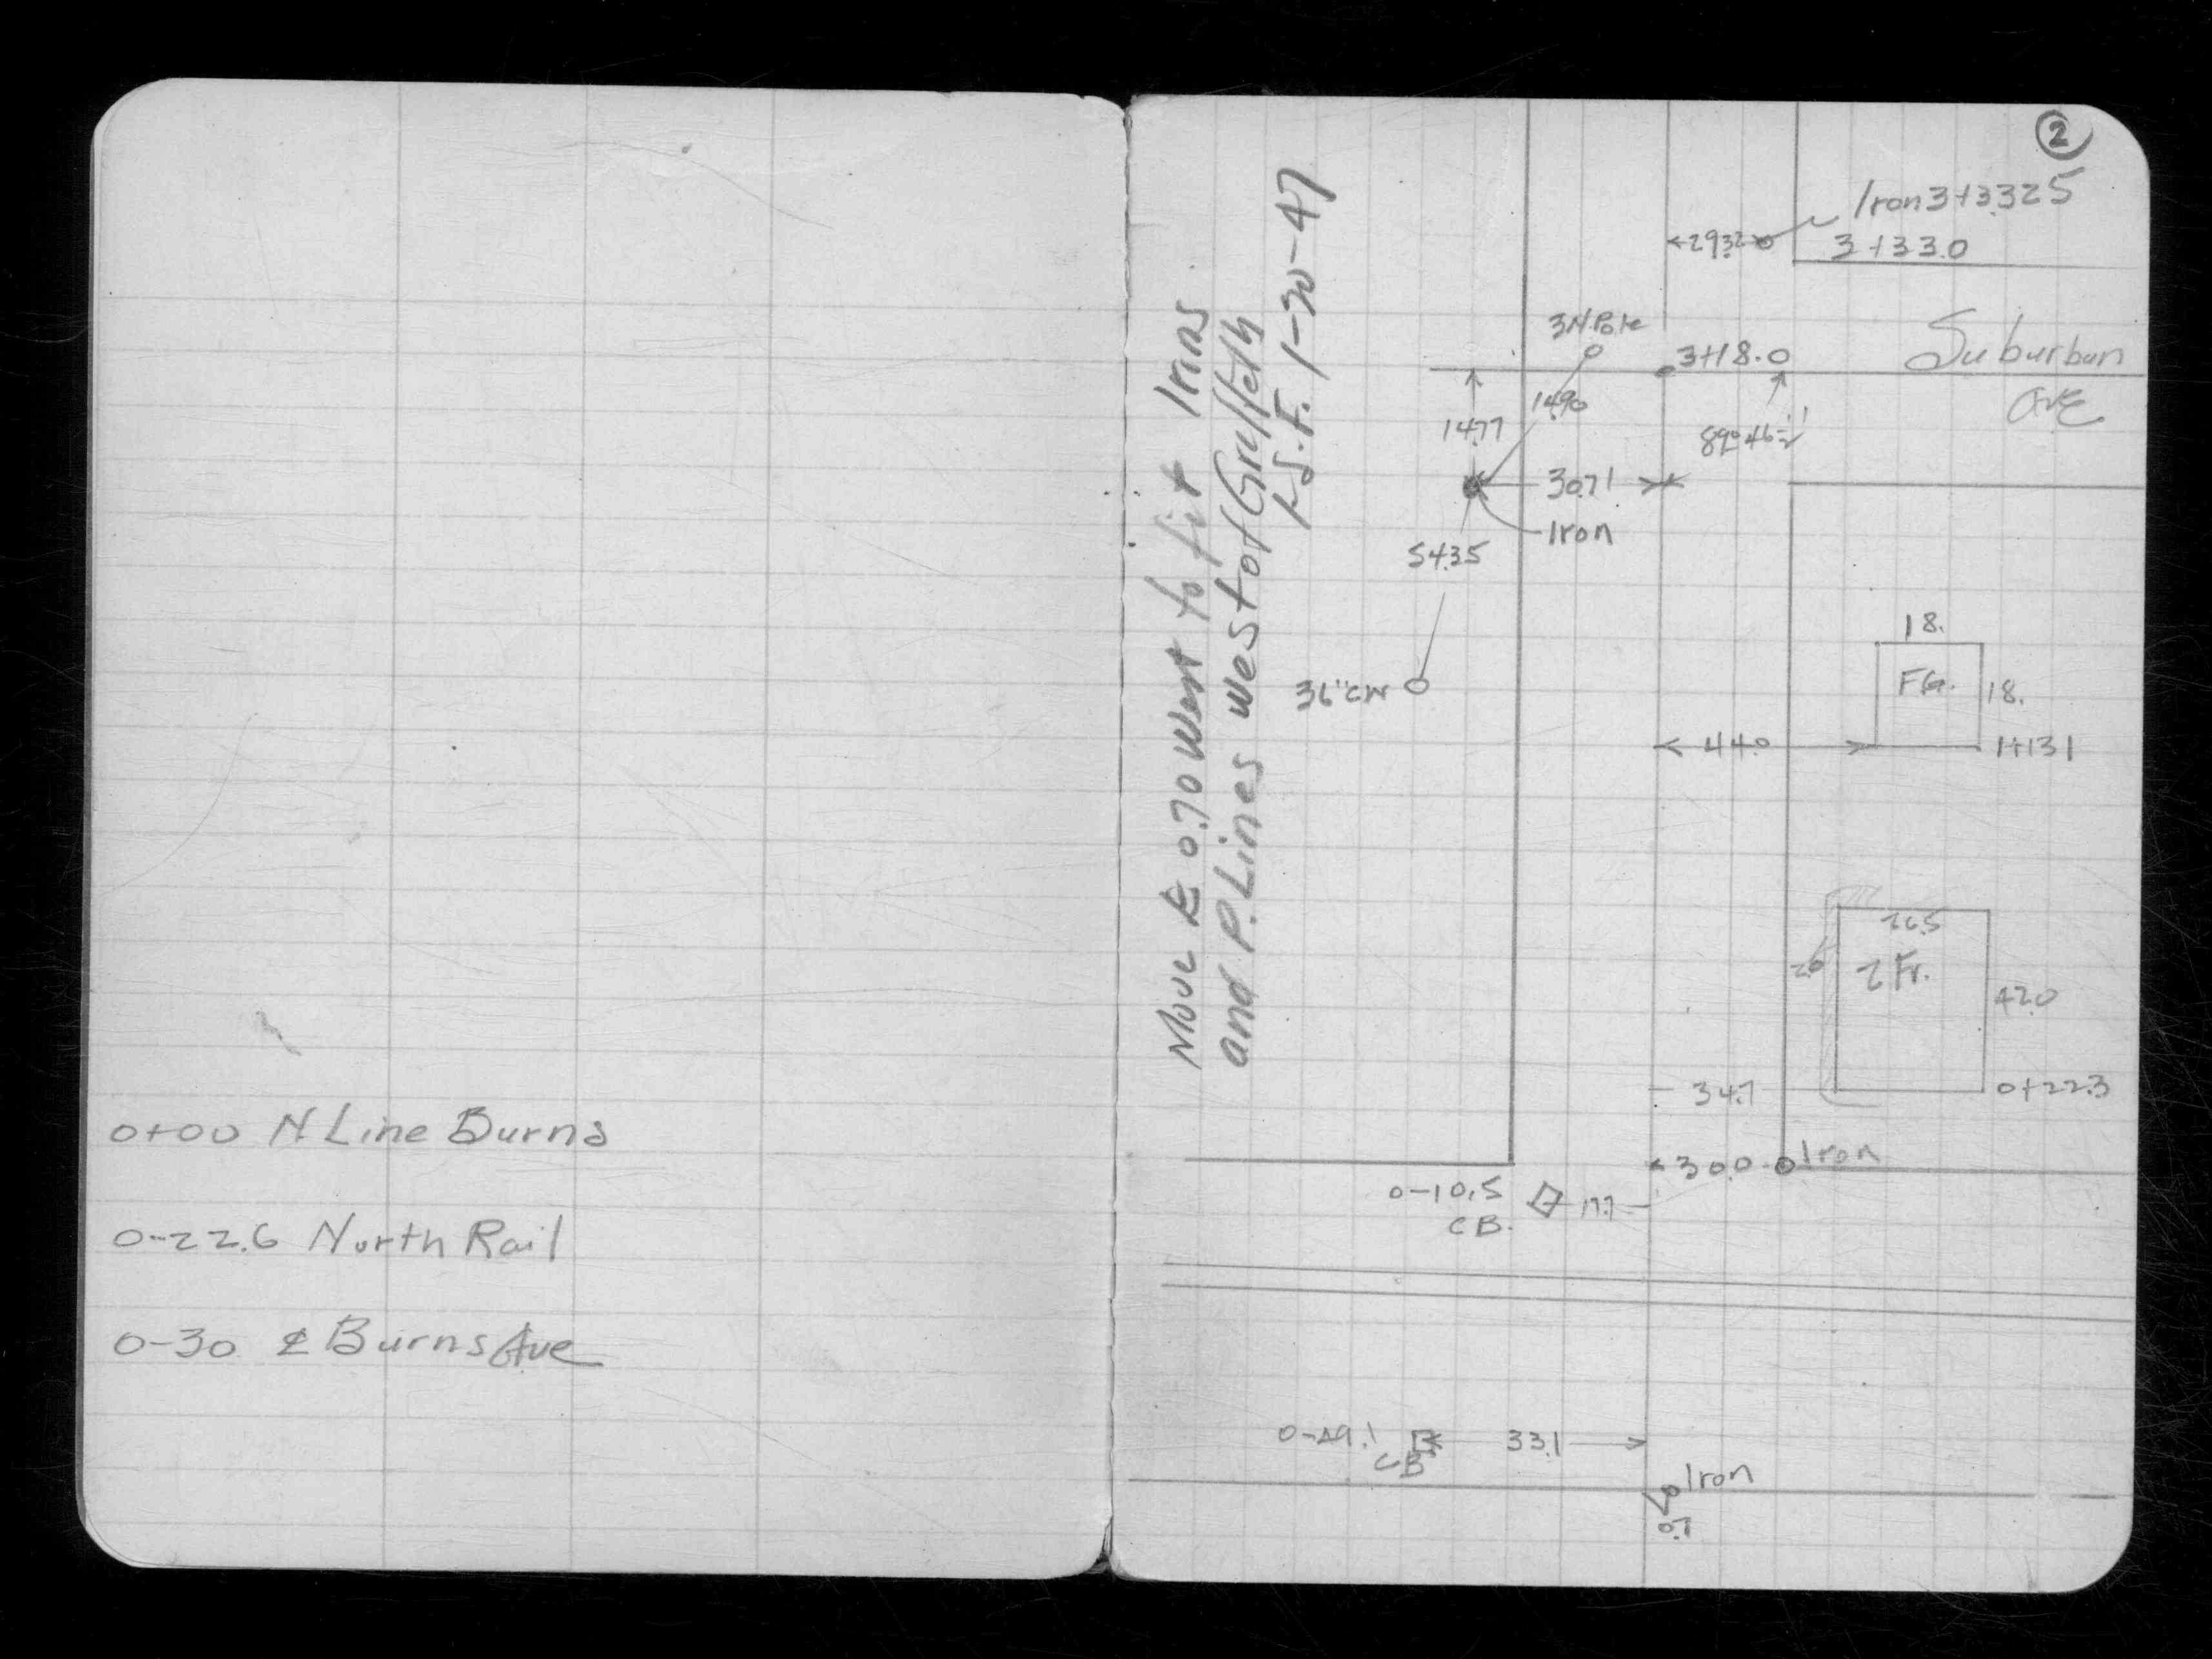 0+00 N Line Burns
0-22.6 North Rail
0-30 ℄ Burns Ave
2
Move ℄ 0.70 West to fit Irons
and P. Lines West of Griffeth
L.S.F. 1-30-47
Iron 3+33.25
29.32
3+33.0
Suburban
Ave
3N Pole
3+18.0
14.90
14.77
89°46½'
30.71
Iron
54.35
36" CW
18.
FG.
18.
44.0
1+13.1
26.5
2 Fr.
2.0
42.0
34.7
0+22.3
30.0
Iron
0-10.5
CB.
17.7
0-49.1
CB
33.1
Iron
0.7